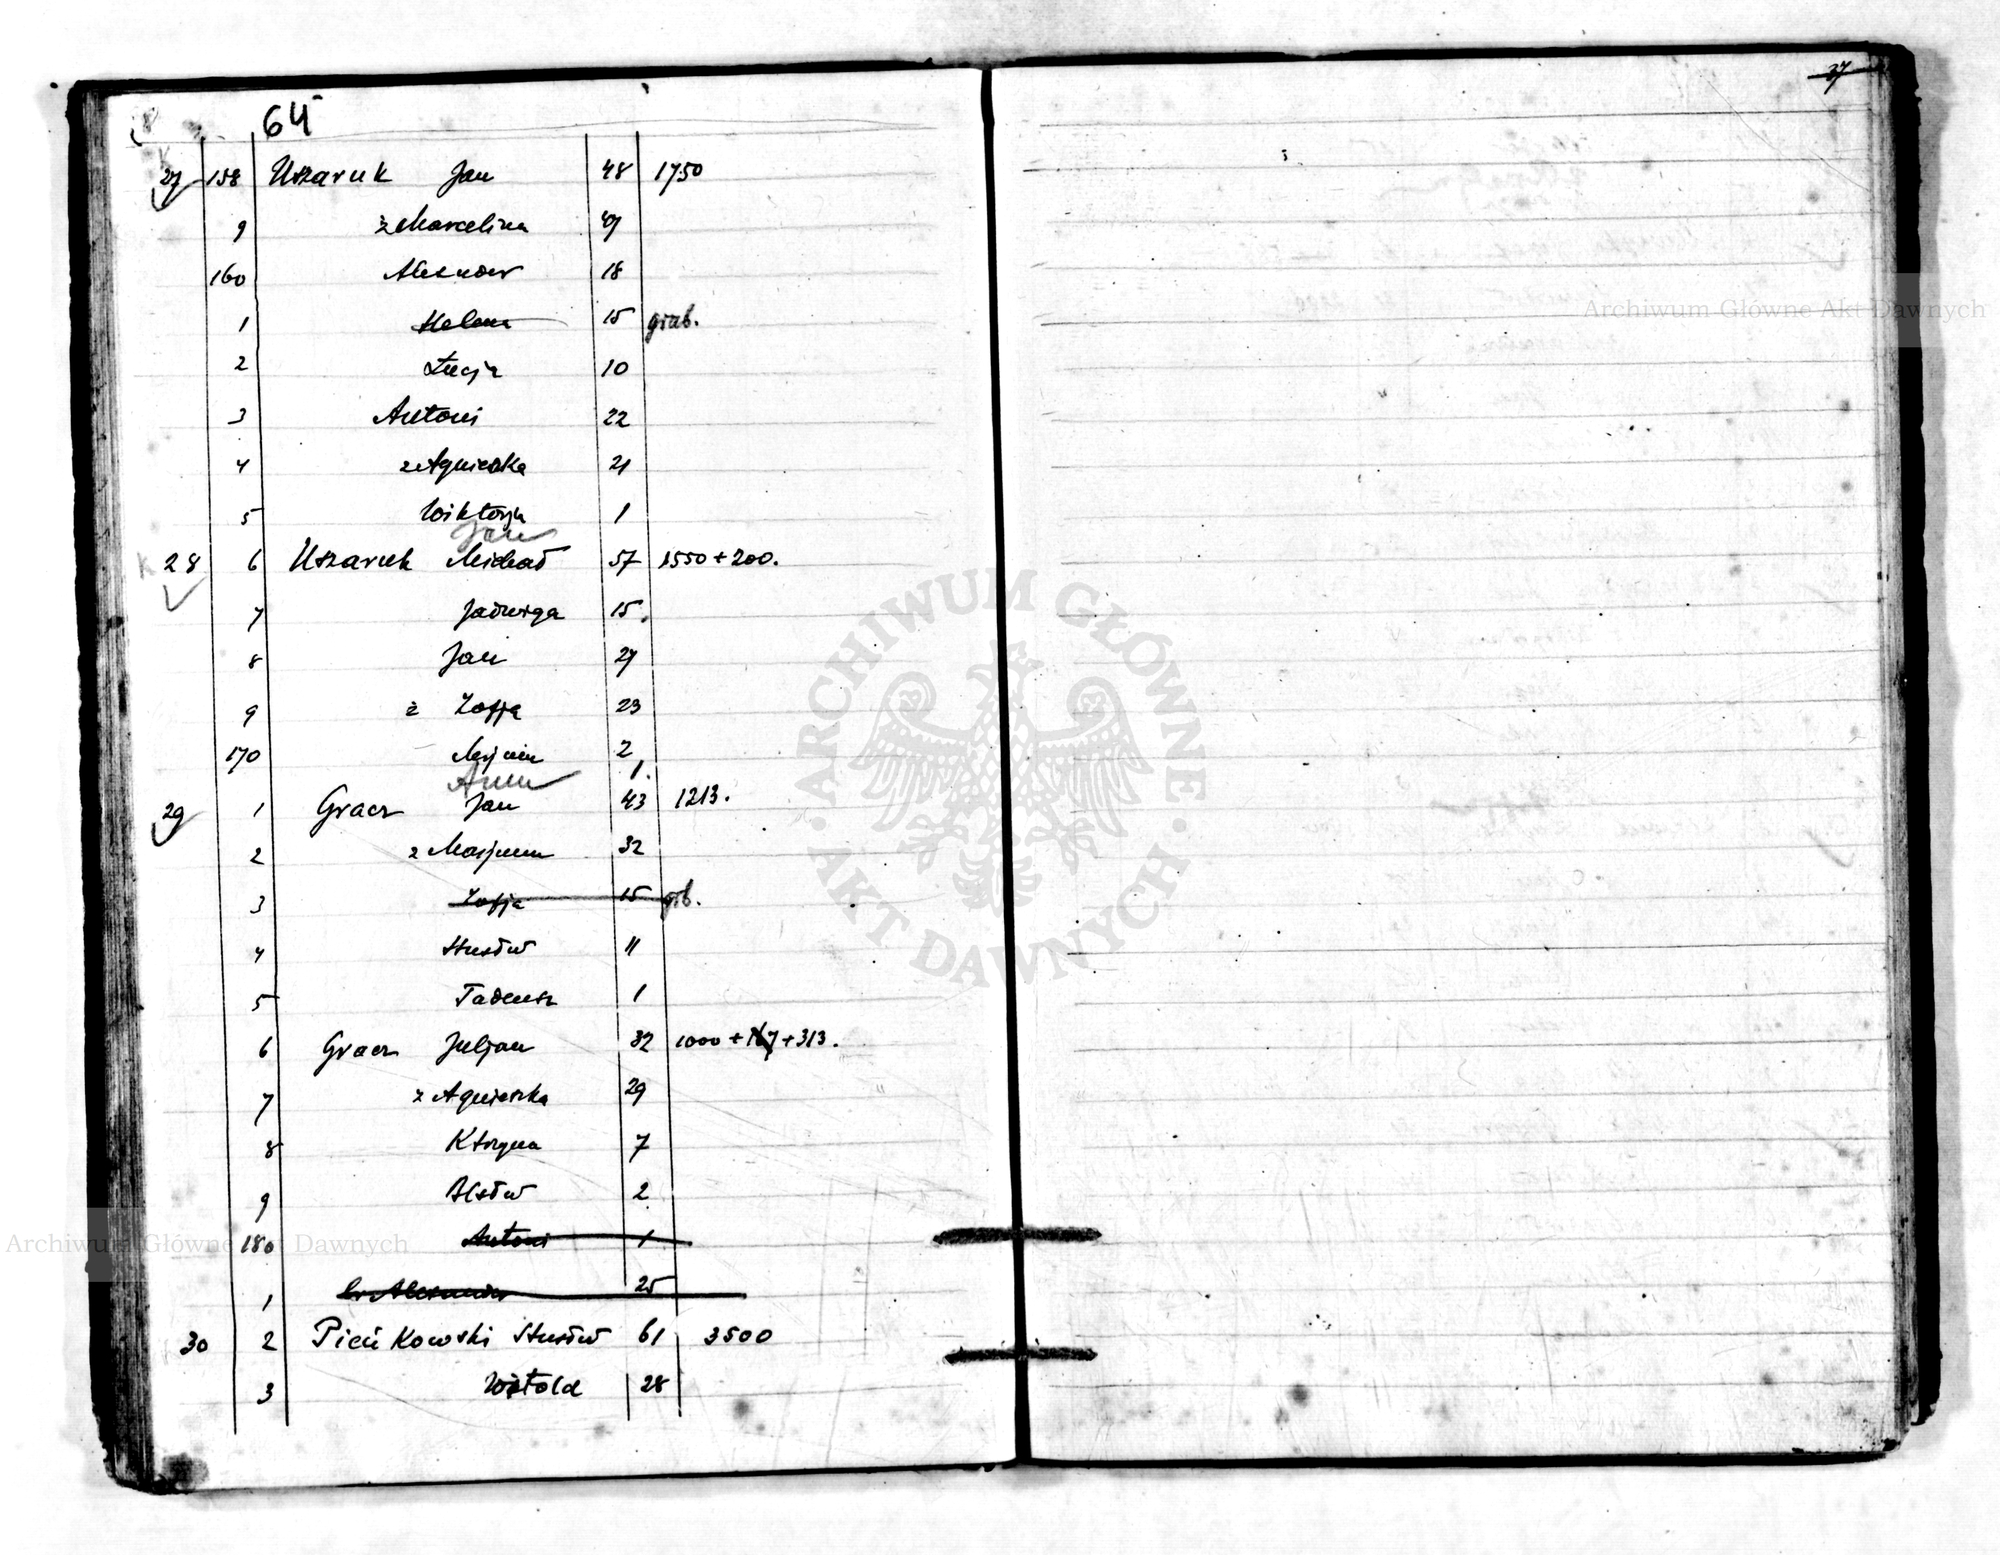 64
27 158 Uszaruk Jan 48 1750
9 ż Marcelina 49
160 Alesnder 18
1 Helena 15 grab.
2 Łucja 10
3 Antoni 22
4 ż Agnieszka 21
5 Wiktorja 1
Jan
28 6 Uszaruk Michał 57 1550+200.
7 Jadwiga 15.
8 Jan 27
9 ż Zofja 23
170 2
Anna 1.
29 1 Gracz Jan 43 1213.
2 ż Marjanna 32
3 Zofja 15 grb.
4 Stusław 11
5 Tadeusz 1
6 Gracz Juljan 32 1000+167+313.
7 ż Agnieszka 29
8 7
9 2
180 Antoni 1
1 br Alesander 25
30 2 Pieńkowski 61 3500
3 Witold 28
37
Archiwum Główne Akt Dawnych
ARCHIWUM GŁÓWNE AKT DAWNYCH
Archiwum Główne Akt Dawnych